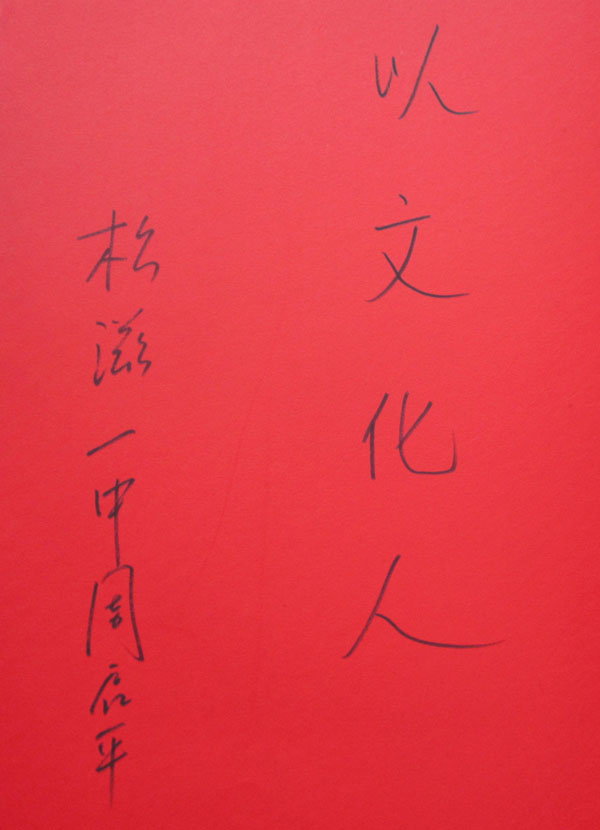 以文化人
松滋一中周启平